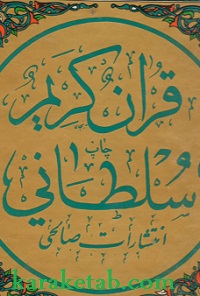 قرآن کریم
چاپ ۱
سُلطاني
انتشارات صالحی
karaketab.com